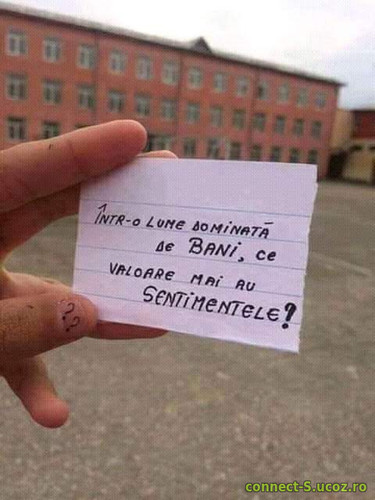 ÎNTR-O LUME DOMINATĂ
DE BANI, CE
VALOARE MAI AU
SENTIMENTELE?
??
connect-S.ucoz.ro